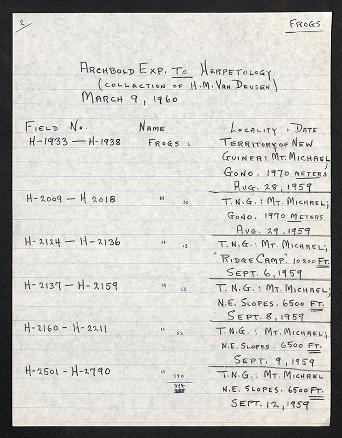 2
FROGS
ARCHBOLD EXP. TO HERPETOLOGY
(COLLECTION OF H.M. VAN DEUSEN)
MARCH 9, 1960
FIELD No. NAME LOCALITY, DATE
H-1933 — H-1938 FROGS 6 TERRITORY OF NEW
GUINEA: MT. MICHAEL;
GONO. 1970 METERS
AUG. 28, 1959
H-2009 — H 2018 " 10 T.N.G.: MT. MICHAEL;
GONO. 1970 METERS
AUG. 29, 1959
H-2124 — H-2136 " 13 T.N.G.: MT. MICHAEL;
"RIDGE CAMP" 10200 FT.
SEPT. 6, 1959
H-2137 — H-2159 " 23 T.N.G.: MT. MICHAEL;
N.E. SLOPES. 6500 FT.
SEPT. 8, 1959
H-2160 — H-2211 " 52 T.N.G.: MT. MICHAEL;
N.E. SLOPES. 6500 FT.
SEPT. 9, 1959
H-2501 — H-2790 " 290 T.N.G.: MT. MICHAEL
N.E. SLOPES. 6500 FT.
394
SEPT. 12, 1959